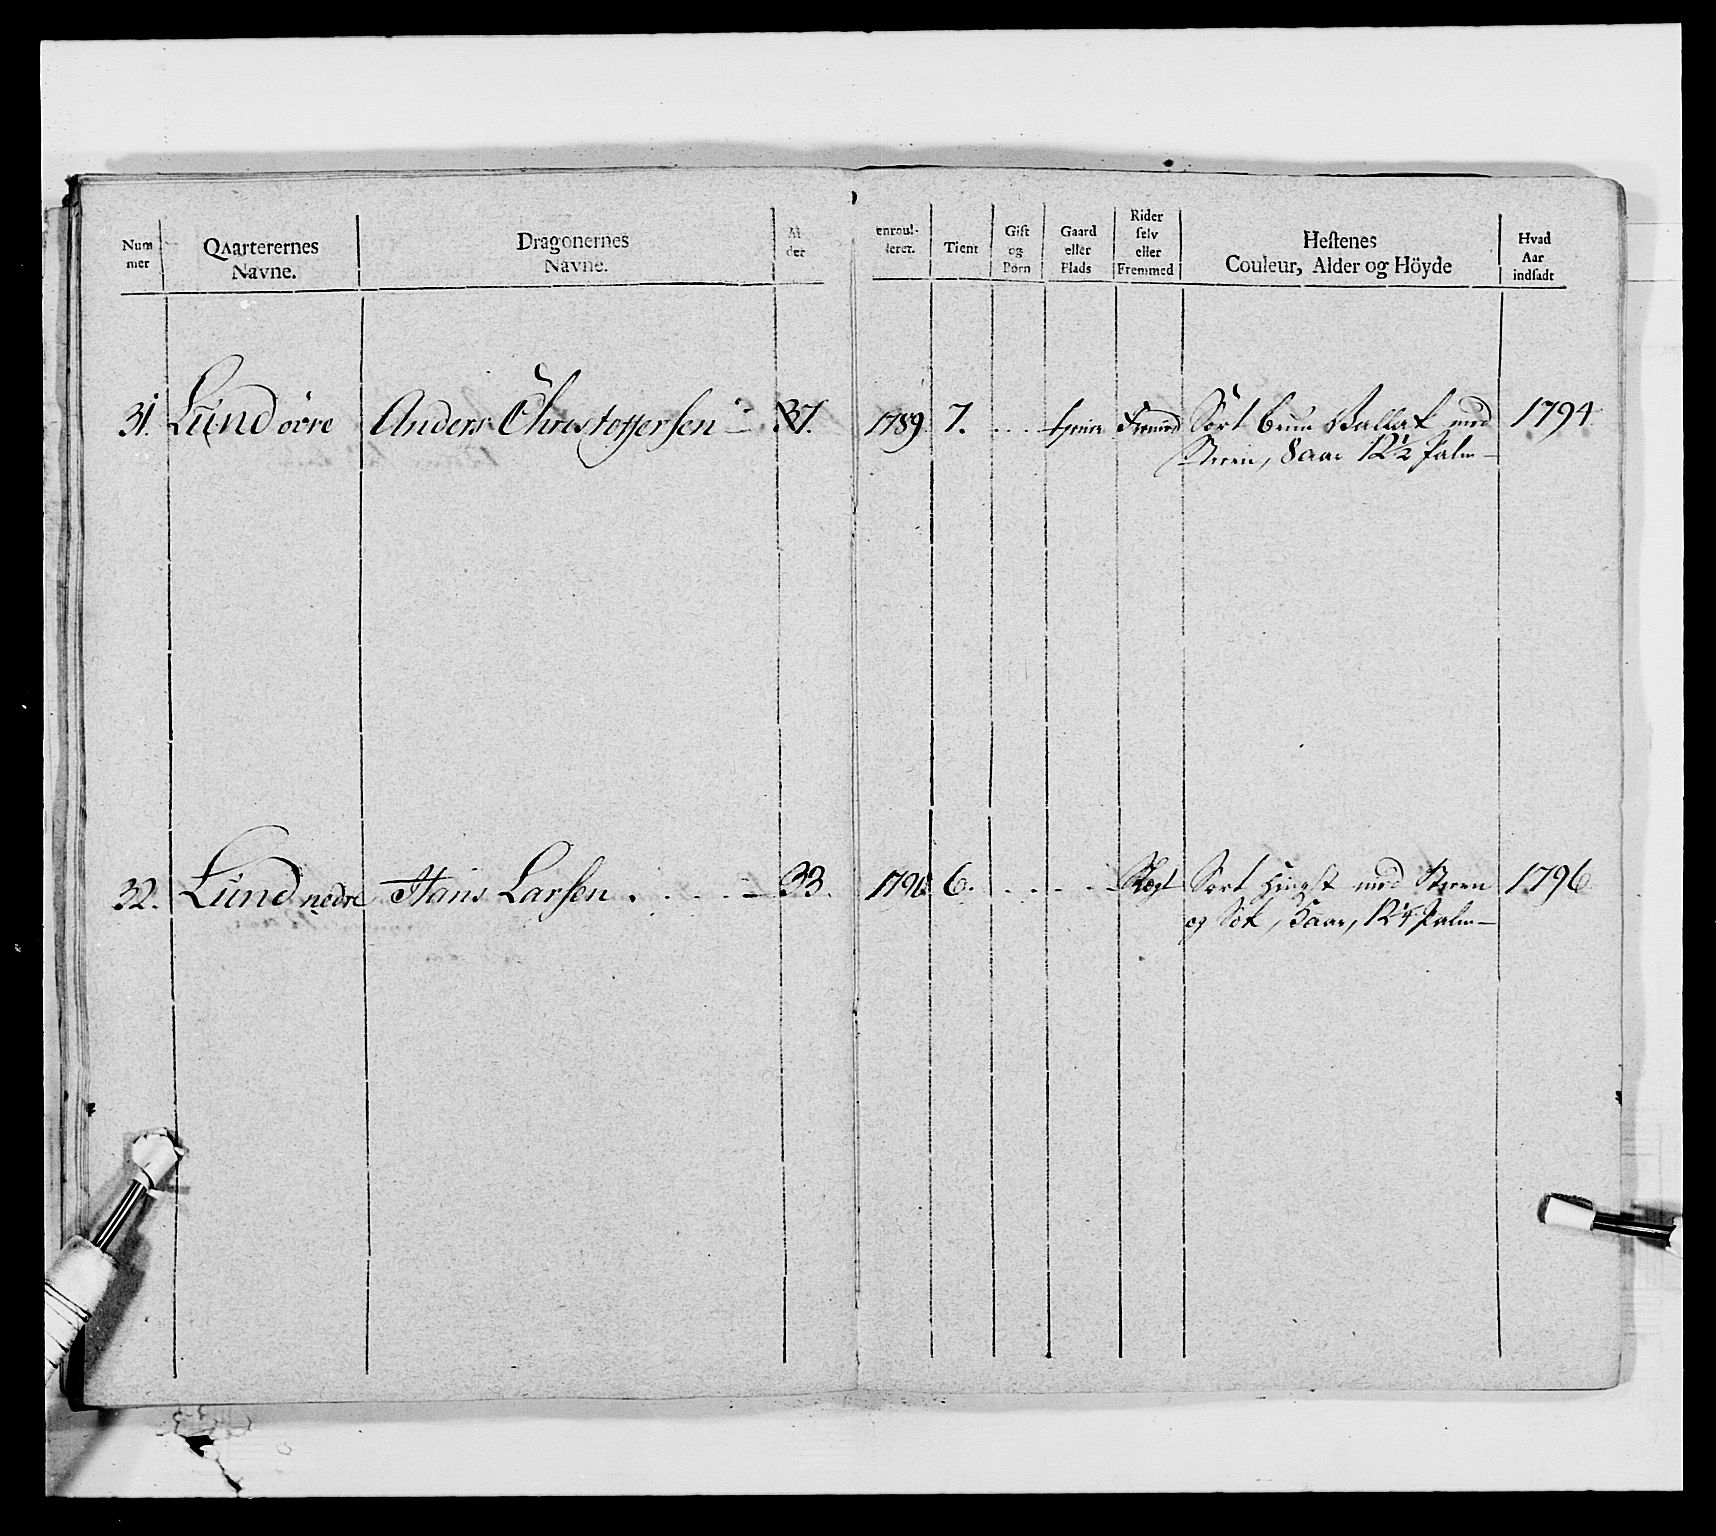 Num
mer
Qvarterernes
Navne.
Dragonernes
Navne.
Al
der
enroul-
leret.
Tient
Gift
og
Børn
Gaard
eller
Plads
Rider
selv
eller
Fremmed
Hestenes
Couleur, Alder og Höyde
Hvad
Aar
indsadt
31. Lund övre Anders Christoffersen 37. 1789 7. Fremed Sort brun Vallak med 1794
Stiern, 8 aar 12½ Palm
32. Lund nedre Hans Larsen 33. 1790 6. Sort Hingst med Stiern 1796
og Sok, 5 aar, 12¼ Palm